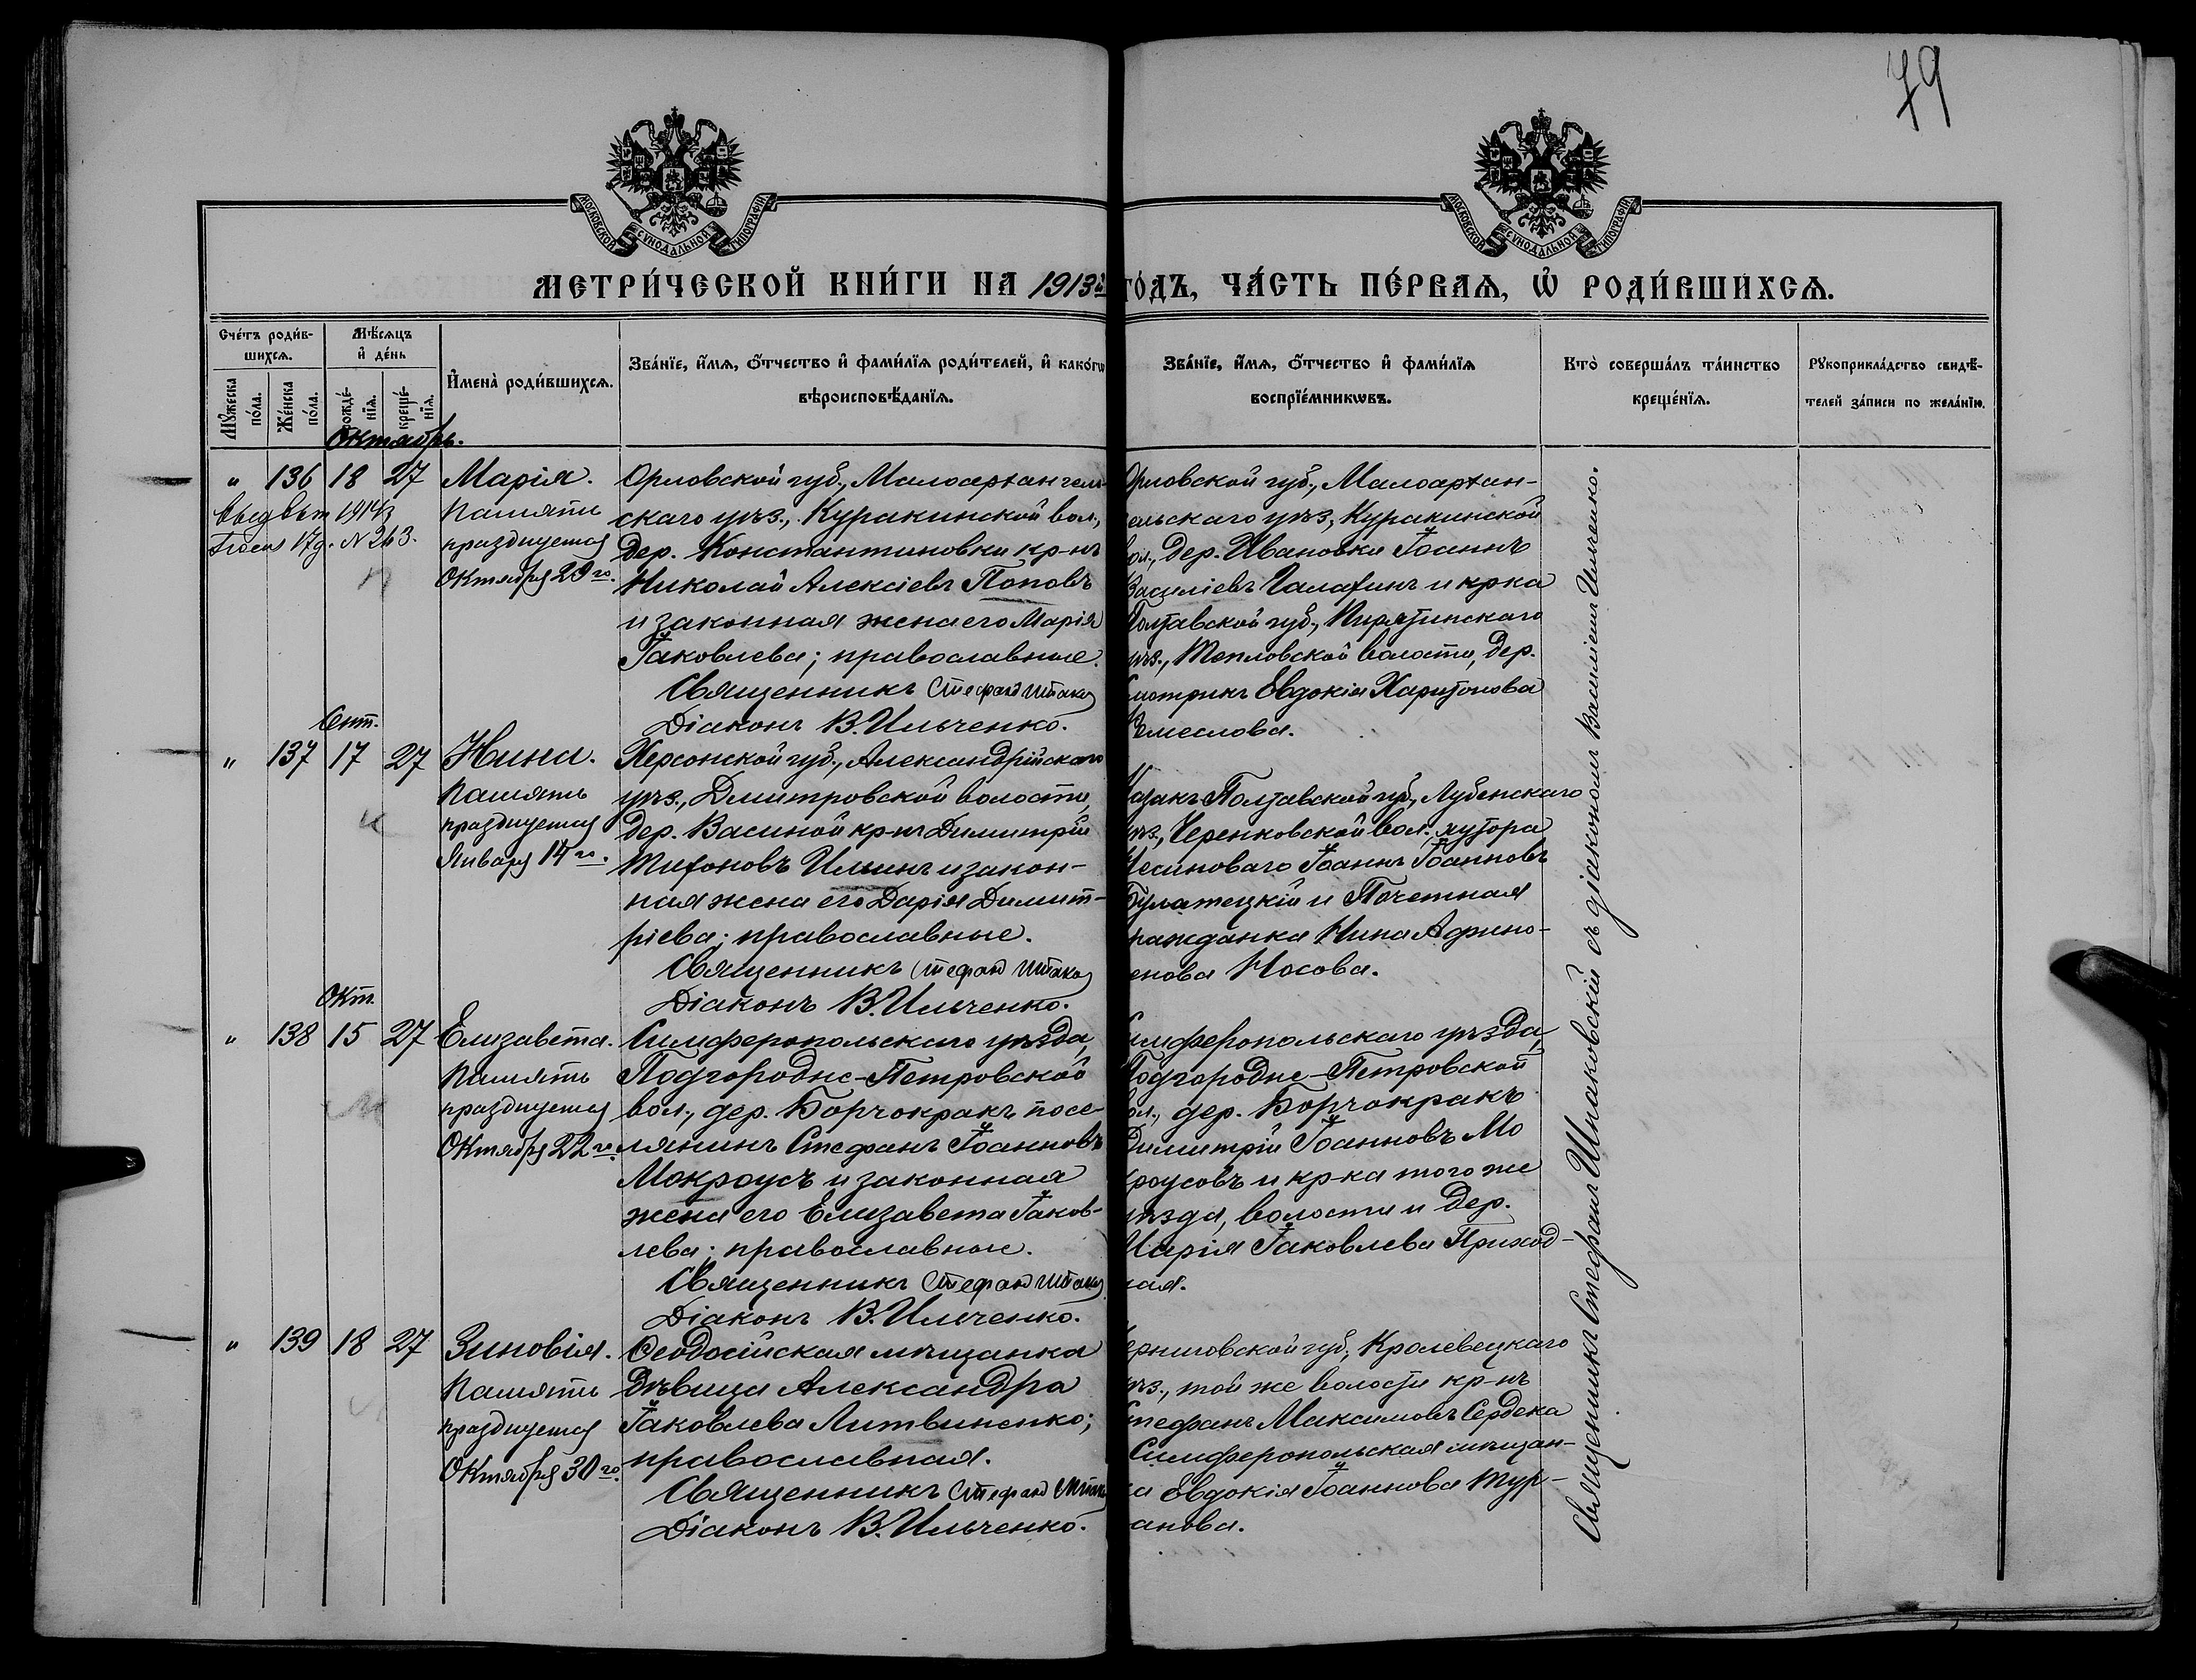 79
МОСКОВСКОЙ СѴНОДАЛЬНОЙ ТИПОГРАФІИ
МОСКОВСКОЙ СѴНОДАЛЬНОЙ ТИПОГРАФІИ
МЕТРИ́ЧЕСКОЙ КНИ́ГИ НА 1913й ГО́ДЪ, ЧА́СТЬ ПЕ́РВАѦ, Ѡ҆ РОДИ́ВШИХСѦ.
Сче́тъ роди́в-
шихсѧ.
Мꙋ́жеска по́ла.
Же́нска по́ла.
Мѣ́сѧцъ
и҆ де́нь
рожде́-нїѧ.
креще́-нїѧ.
И҆мена̀ роди́вшихсѧ.
Зва́нїе, и҆́мѧ, ѻ҆́тчество и҆ фами́лїѧ роди́телей, и҆ како́гѡ
вѣроисповѣ́данїѧ.
Зва́нїе, и҆́мѧ, ѻ҆́тчество и҆ фами́лїѧ
воспрїе́мникѡвъ.
Кто̀ соверша́лъ та́инство
креще́нїѧ.
Рꙋкоприкла́дство свидѣ́-
телей за́писи по жела́нїю.
Октябрь.
" 136 18 27 Марія.
Память
празднуется
Октября 29го.
1914
17 д. N 263.
Орловской губ., Малоархангель-
скаго уѣз., Куракинской вол.,
дер. Константиновки кр-нъ
Николай Алексіевъ Поповъ
и законная жена его Марія
Іаковлева; православные.
Священникъ Стефанъ Шпаков
Діаконъ В. Ильченко.
Орловской губ., Малоархан-
ельскаго уѣз., Куракинской
вол., дер. Ивановки Іоаннъ
Василіевъ Галахинъ и кр-ка
Полтавской губ., Пирятинскаго
уѣз., Тепловской волости, дер.
Евдокія Харитонова
Ремеслова.
Сент.
" 137 17 27 Нина.
Память
празднуется
Января 14го.
Херсонской губ., Александрійскаго
уѣз., Дмитровской волости,
дер. Васиной кр-нъ Димитрій
Тихоновъ Ильинъ и закон-
ная жена его Дарія Димит-
ріева; православные.
Священникъ Стефанъ Шпаков
Діаконъ В. Ильченко.
Казакъ Полтавской губ., Лубенскаго
уѣз., Черенковской вол., хутора
Іоаннъ Іоанновъ
Булатецкій и Почетная
гражданка Нина Афино-
енова Носова.
Окт.
" 138 15 27 Елизавета.
Память
празднуется
Октября 22го.
Симферопольскаго уѣзда,
Подгородне-Петровской
вол., дер. Борчокракъ посе-
лянинъ Стефанъ Іоанновъ
Мокроусъ и законная
жена его Елизавета Іаков-
лева; православные.
Священникъ Стефанъ Шпаков
Діаконъ В. Ильченко.
Симферопольскаго уѣзда,
Подгородне-Петровской
вол., дер. Борчокракъ
Димитрій Іоанновъ Мо
кроусовъ и кр-ка того же
уѣзда, волости и дер.
Марія Іаковлева Приход-
ная.
" 139 18 27 Зиновія.
Память
празднуется
Октября 30го.
Ѳеодосійская мѣщанка
дѣвица Александра
Іаковлева Литвиненко;
православная.
Священникъ Стефанъ Шпак
Діаконъ В. Ильченко.
Черниговской губ., Кролевецкаго
уѣз., той же волости кр-нъ
Стефанъ Максимовъ Сердека
Симферопольская мѣщан-
ка Евдокія Іоаннова Тур-
анова.
Священникъ Стефанъ Шпаковскій съ діакономъ Василіемъ Ильченко.